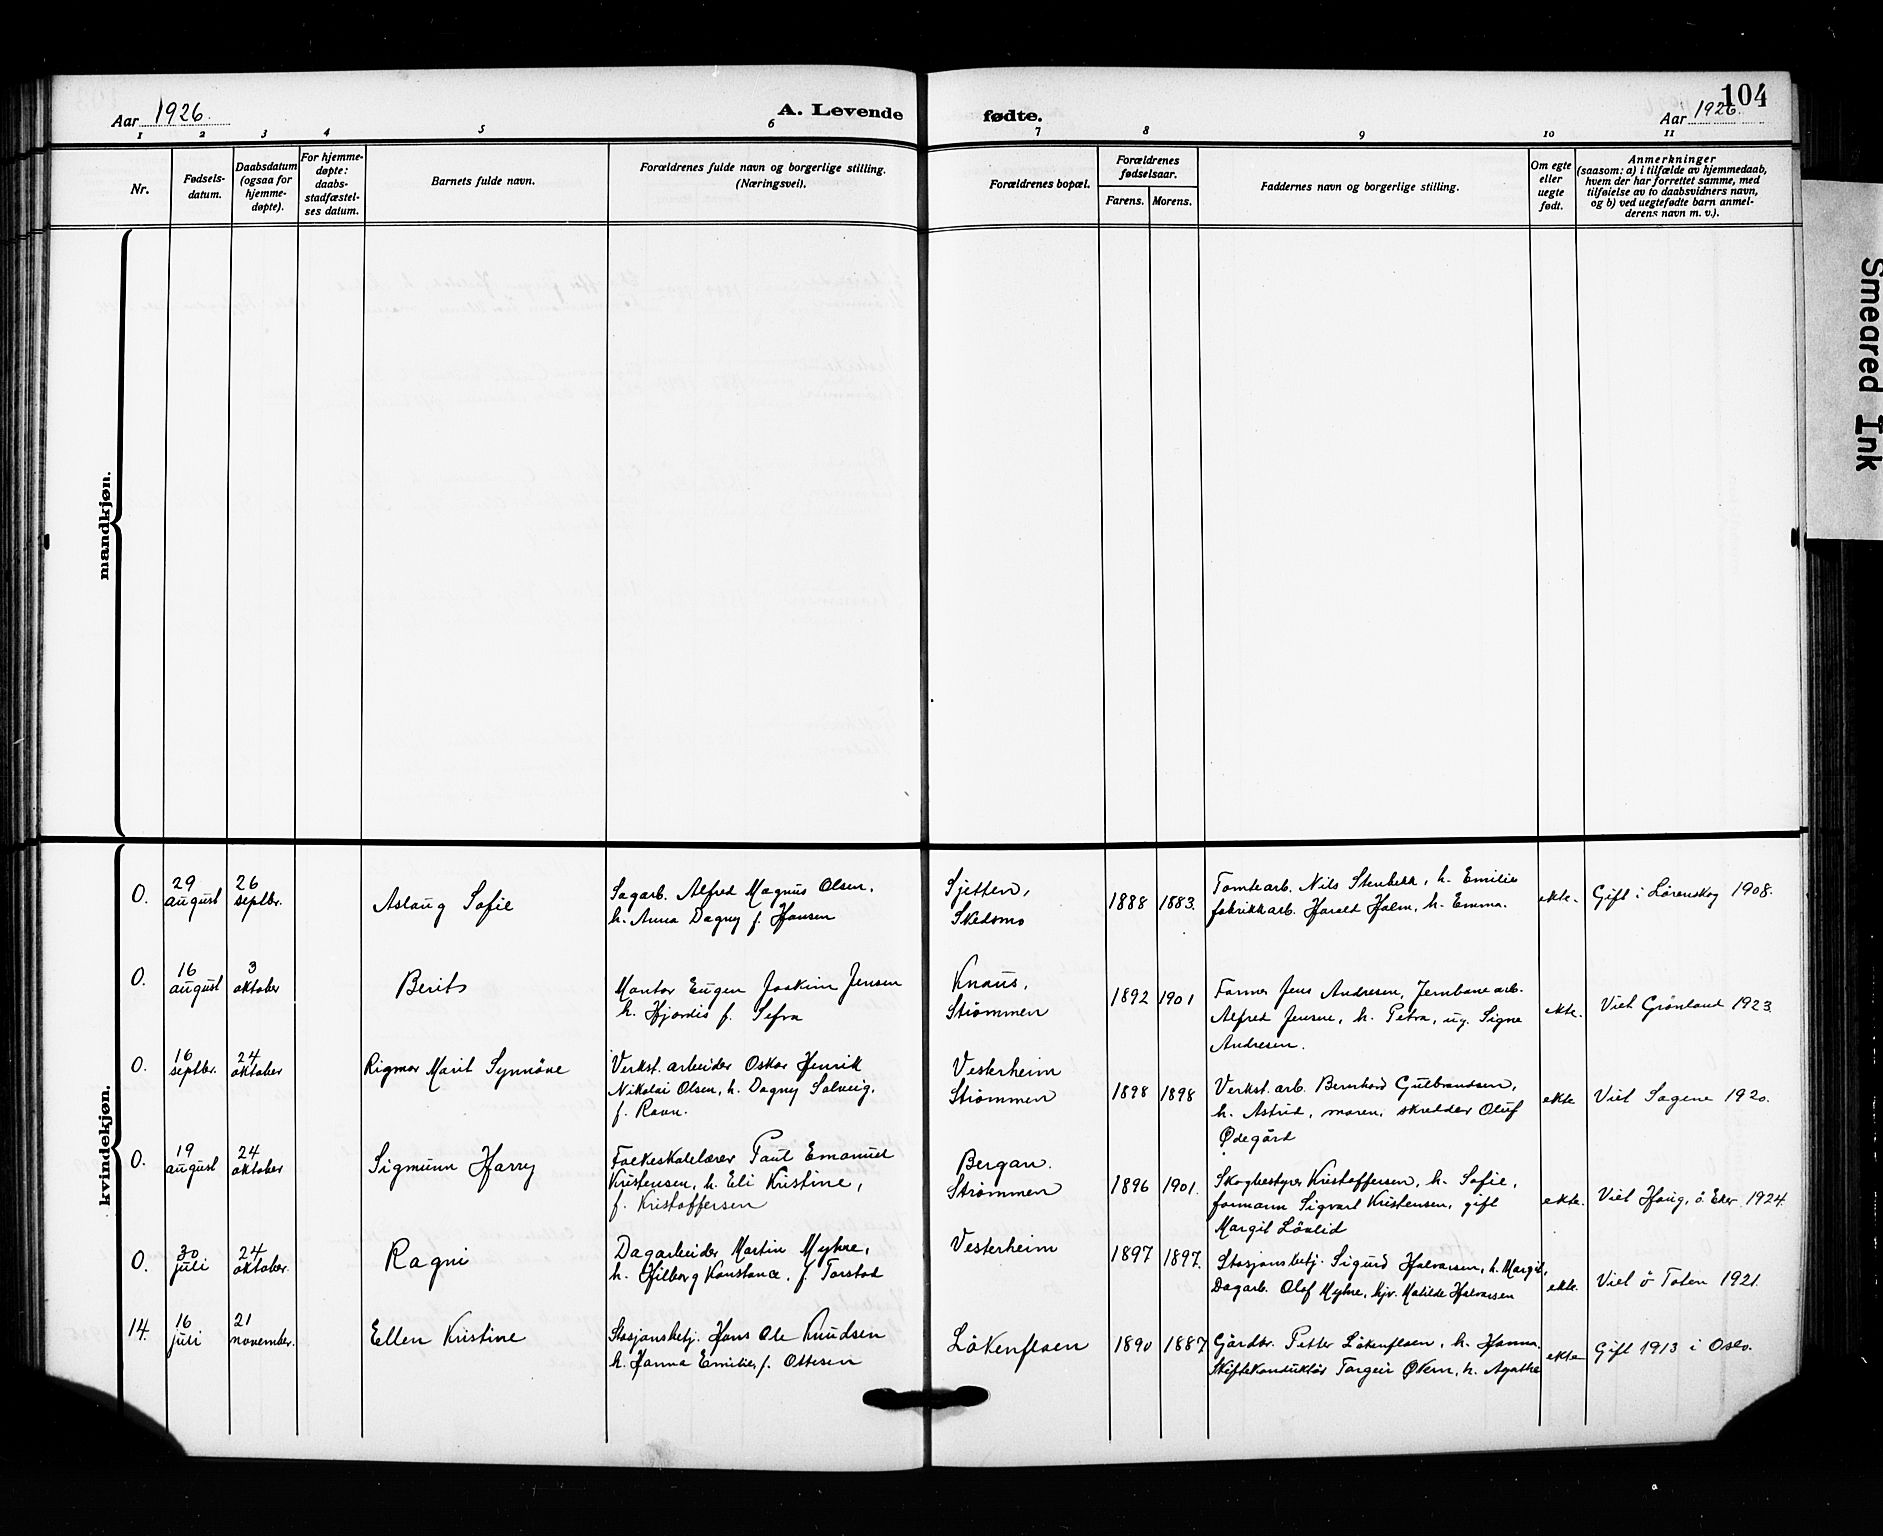 104
Aar 1926.
A. Levende
fødte.
Aar 1926.
1 2 3 4 5 6 7 8 9 10 11
Nr.
Fødsels-
datum.
Daabsdatum
(ogsaa for
hjemme-
døpte).
For hjemme-
døpte:
daabs-
stadfæstel-
ses datum.
Barnets fulde navn.
Forældrenes fulde navn og borgerlige stilling.
(Næringsvei).
Forældrenes bopæl.
Forældrenes
fødselsaar.
Farens. Morens.
Faddernes navn og borgerlige stilling.
Om egte
eller
uegte
født.
Anmerkninger
(saasom: a) i tilfælde av hjemmedaab,
hvem der har forrettet samme, med
tilføielse av to daabsvidners navn,
og b) ved uegtefødte barn anmel-
derens navn m. v.).
Smeared Ink
mandkjøn.
kvindekjøn.
0.
29
august
26
septbr.
Aslaug Sofie
Sagarb. Alfred Magnus Olsen,
h. Anna Dagny f. Hansen
Sjetten,
Skedsmo
1888 1883.
Tomtearb. Nils Stenbekk, h. Emilie
fabrikkarb. Harald Holm, h. Emma.
ekte.
Gift i Lørenskog 1908.
0.
16
august
3
oktober
Berit
Montør Eugen Joakim Jensen
h. Hjørdis f. Sefra
Knaus,
Strømmen
1892 1901
Former Jens Andresen, Jernbanearb.
Alfred Jensen, h. Petra, ug. Signe
Andresen.
ekte.
Viet Grønland 1923.
0.
16
septbr.
24
oktober
Rigmor Marit Synnöve
Verkst. arbeider Oskar Henrik
Nikolai Olsen, h. Dagny Solveig,
f. Ravn.
Vesterheim
Strømmen
1898 1898
Verkst. arb. Bernhard Gulbrandsen,
h. Astrid, maren, skredder Oluf
Ødegård
ekte
Viet Sagene 1920.
0.
19
august
24
oktober
Sigmunn Harry
Folkeskolelærer Paul Emanuel
Kristensen, h. Eli Kristine,
f. Kristoffersen
Bergan.
Strømmen
1896 1901.
Skogbestyrer Kristoffersen, h. Sofie,
formann Sigvart Kristensen, gift
Margit Lövlid
ekte.
Viet Haug, ö. Eker 1924.
0.
30
juli
24
oktober.
Ragni
Dagarbeider Martin Myhre,
h. Hilborg Konstance, f. Torstad
Vesterheim
1897 1897.
Stasjonsbetj. Sigurd Halvorsen, h. Margit,
Dagarb. Olaf Myhre, hjv. Matilde Halvorsen
ekte.
Viet ö Toten 1921.
14.
16
juli
21
november.
Ellen Kristine
Stasjonsbetj. Hans Ole Knudsen
h. Hanna Emilie, f. Ottesen
Lökenflaen
1890 1887
Gårdbr. Petter Lökenflaen, h. Hanna
Skiftekonduktør Torgeir Økern, h. Agathe
ekte
Gift 1913 i Oslo.